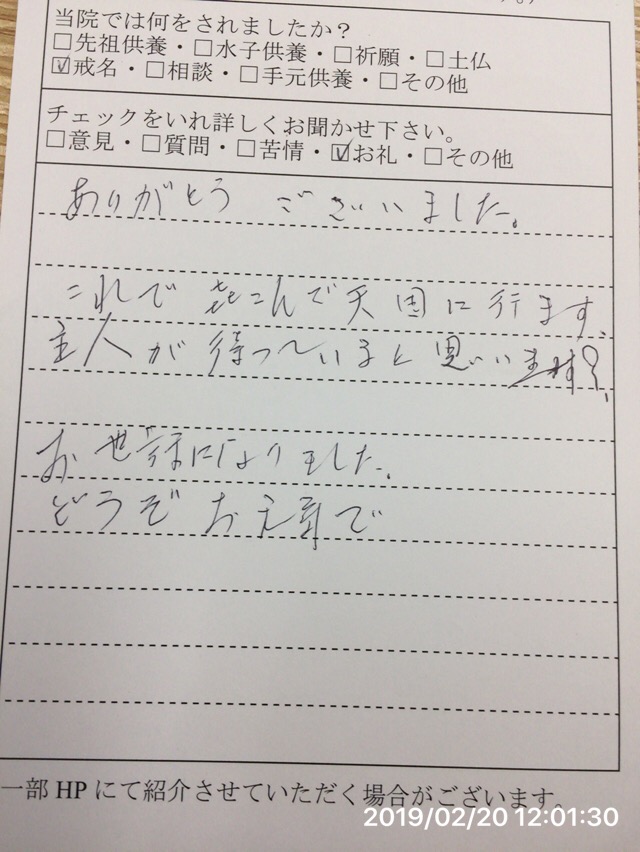 当院では何をされましたか？
□先祖供養・□水子供養・□祈願・□土仏
☑戒名・□相談・□手元供養・□その他
チェックをいれ詳しくお聞かせ下さい。
□意見・□質問・□苦情・☑お礼・□その他
ありがとう ございました。
これで 喜こんで天国に行ます、
主人が 待っていると思います。
お世話になりました。
どうぞ お元気で
一部 HP にて紹介させていただく場合がございます。
2019/02/20 12:01:30